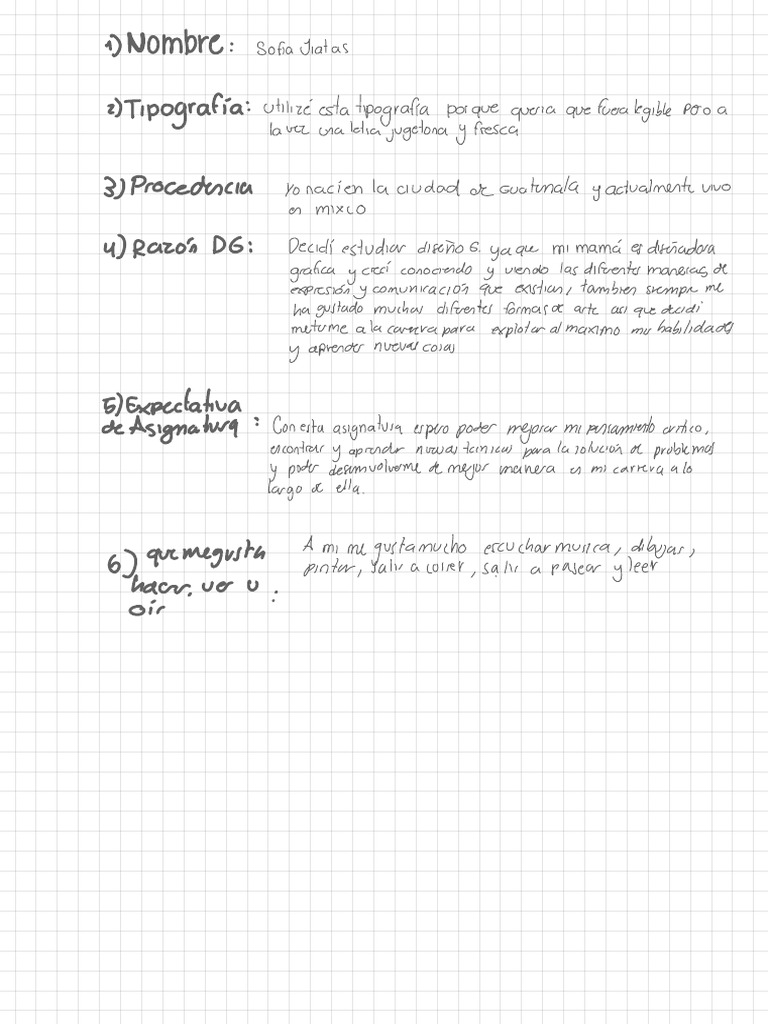 1) Nombre: Sofia Jiatas
2) Tipografía: utilizé esta tipografía porque queria que fuera legible pero a
la vez una letra jugetona y fresca
3) Procedencia yo naci en la ciudad de Guatemala y actualmente vivo
en mixco
4) Razón DG: Decidí estudiar diseño G. ya que mi mamá es diseñadora
grafica y crecí conociendo y viendo las difrentes maneras de
expresión y comunicación que existian, tambien siempre me
ha gustado muchas difrentes formas de arte asi que decidi
meterme a la carrera para explotar al maximo mis habilidades
y aprender nuevas cosas
5) Expectativa
de Asignatura : Con esta asignatura espero poder mejorar mi pensamiento critico,
encontrar y aprender nuevas tecnicas para la solución de problemas
y poder desenvolverme de mejor manera en mi carrera a lo
largo de ella.
6) que me gusta
hacer, ver u
oir : A mi me gusta mucho escuchar musica, dibujar,
pintar, salir a correr, salir a pasear y leer